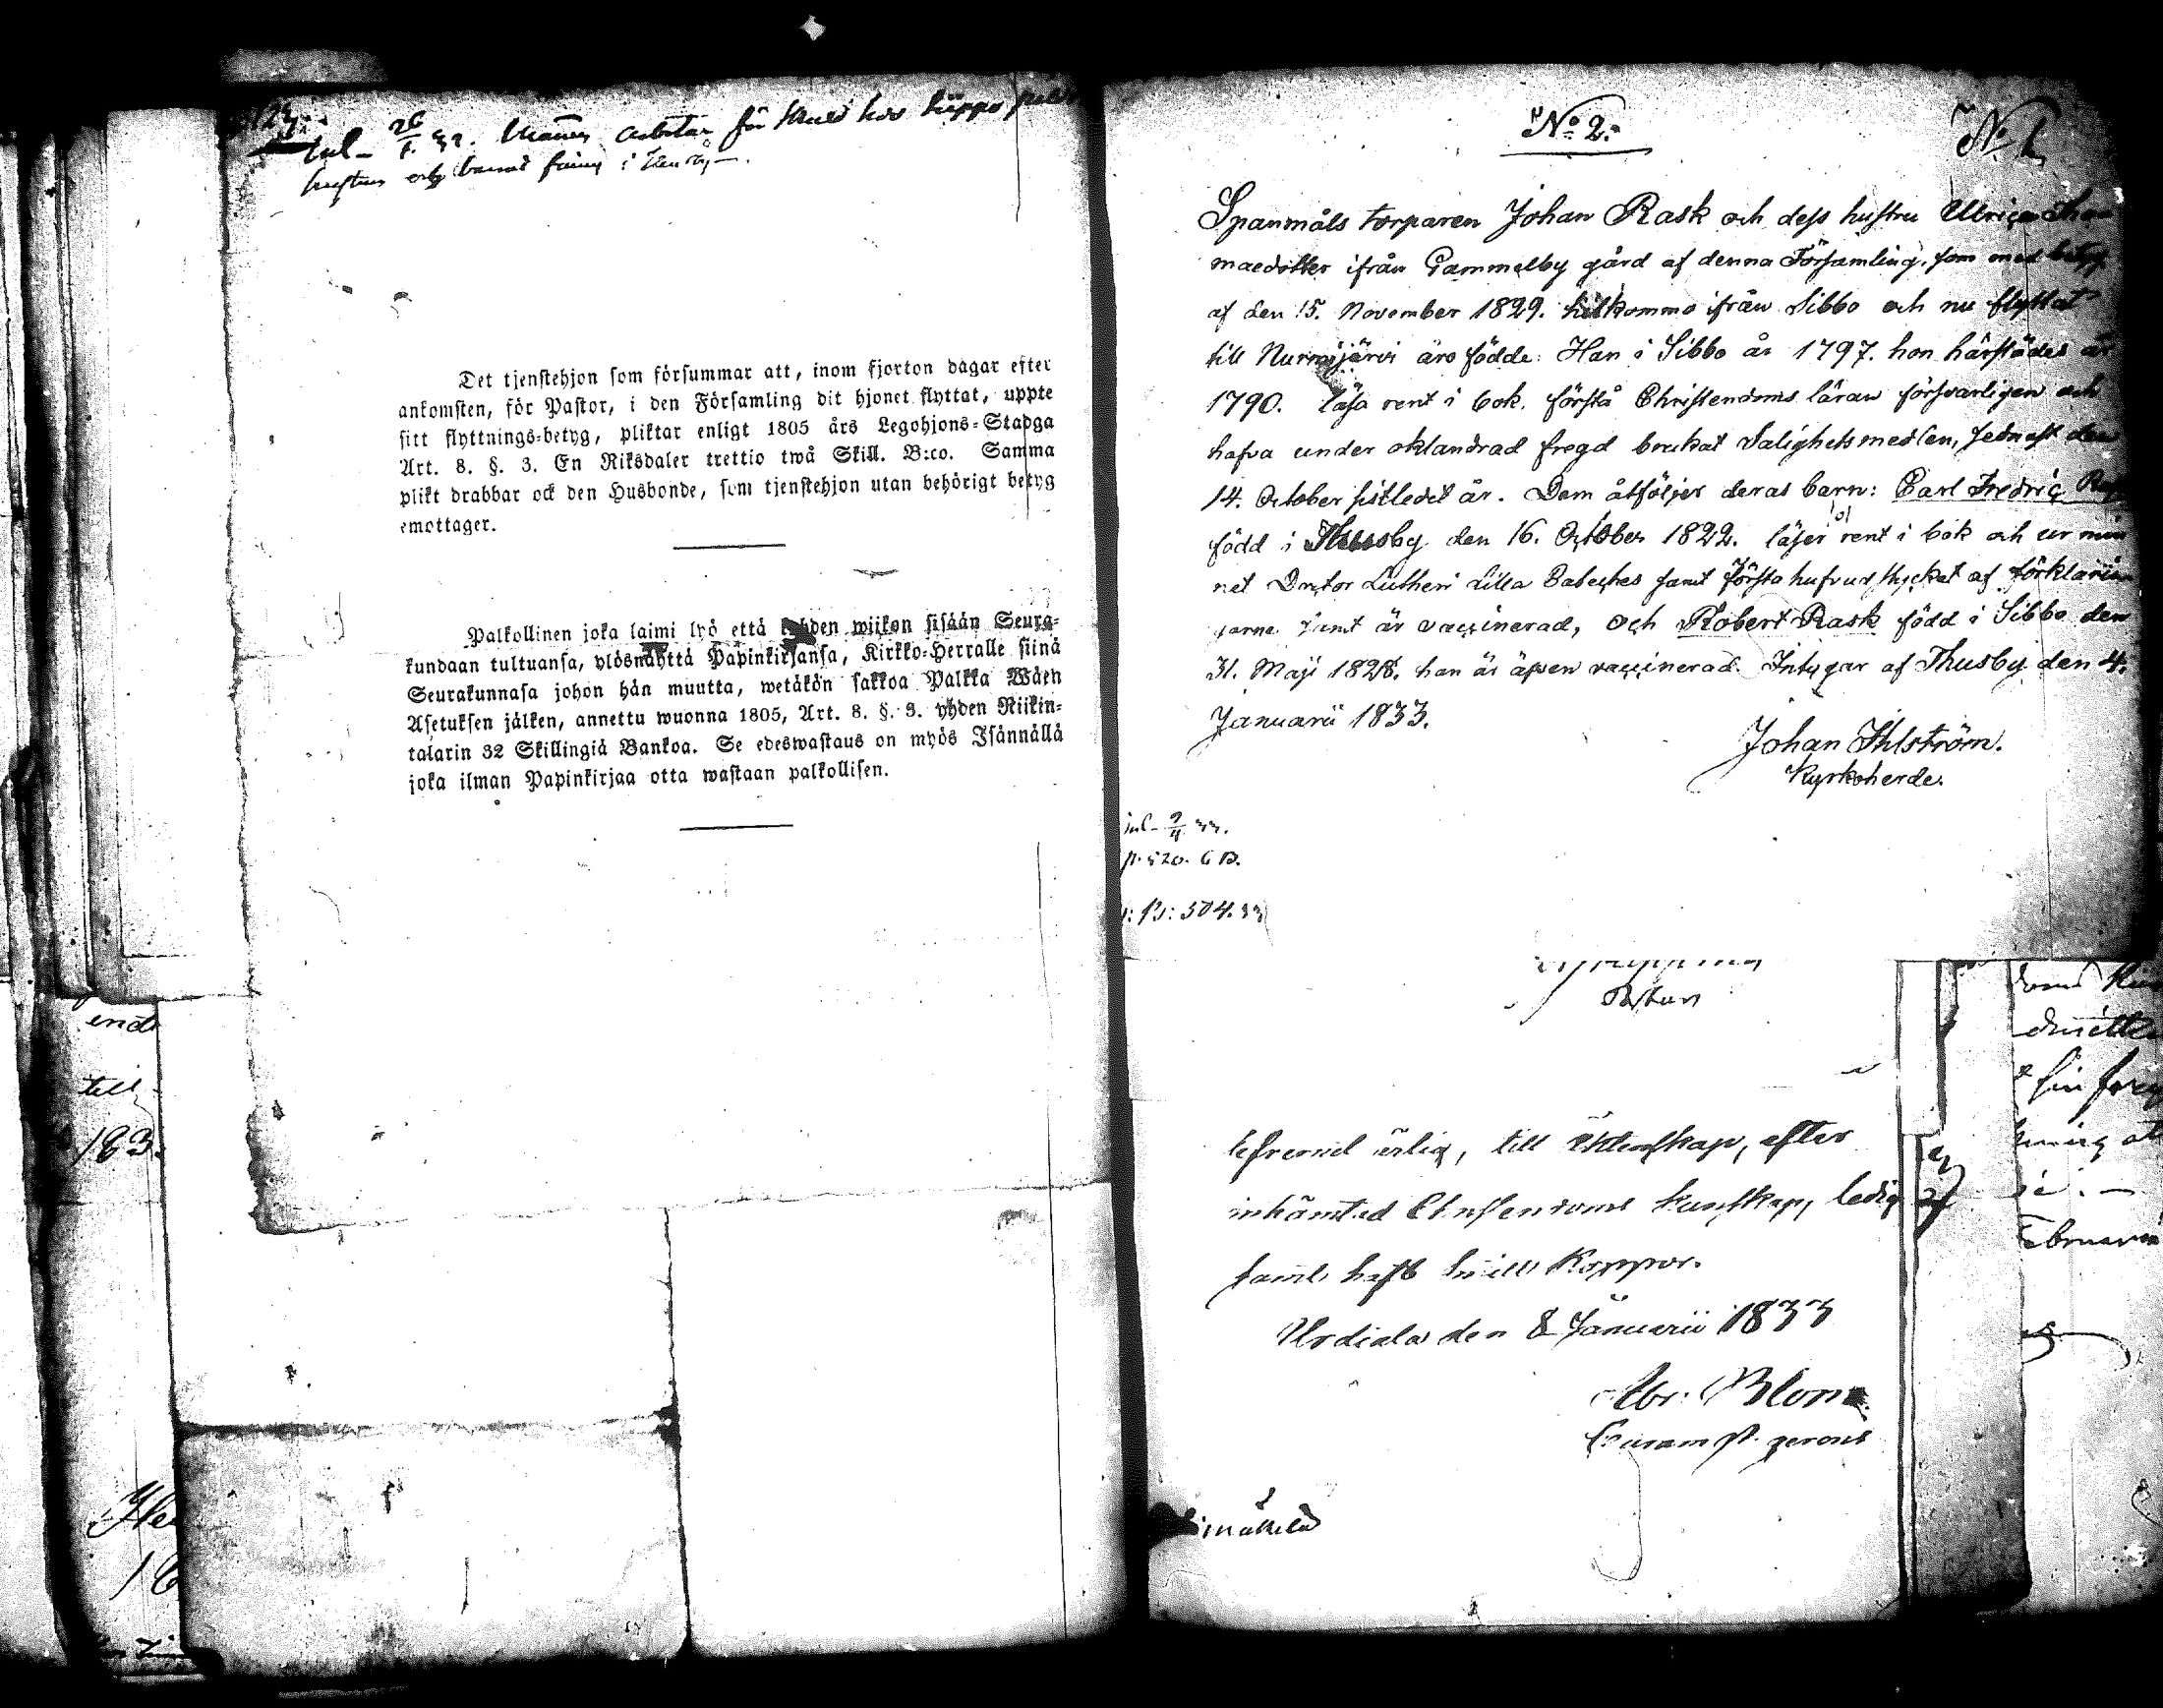 Inl. 26/1 32. Mannen arbetar för hos
hustrun och barnet
Det tjenstehjon som försummar att, inom fjorton dagar efter
ankomsten, för Pastor, i den Församling dit hjonet flyttat, uppte
sitt flyttnings-betyg, pliktar enligt 1805 års Legohjons-Stadga
Art. 8. §. 3. En Riksdaler trettio twå Skill. B:co. Samma
plikt drabbar ock den Husbonde, som tjenstehjon utan behörigt betyg
emottager.
Palkollinen joka laimi lyö että kahden wiikon sisään Seura-
kundaan tultuansa, ylösnäyttä Papinkirjansa, Kirkko-Herralle siinä
Seurakunnasa johon hän muutta, wetäkön sakkoa Palkka Wäen
Asetuksen jälken, annettu wuonna 1805, Art. 8. §. 3. yhden Riikin-
talarin 32 Skillingiä Bankoa. Se edeswastaus on myös Isännällä
joka ilman Papinkirjaa otta wastaan palkollisen.
end
till
183
16
No 2.
No
Spanmåls torparen Johan Rask och dess hustru Ulrica Tho
maedotter ifrån Gammelby gård af denna Församling, som med betyg
af den 15. November 1829. hitkommo ifrån Sibbo och nu flyttat
till Nurmijärvi äro födde: Han i Sibbo år 1797. hon härstädes år
1790. läsa rent i bok. förstå Christendoms läran försvarligen och
hafva under oklandrad fregd brukat Salighetsmedlen, sednast den
14. October sistledit år. Dem åtföljer deras barn: Carl Fredric
född i Thusby den 16. October 1822. läser rent i bok och ur min
net Doctor Lutheri Lilla Cateches samt första hufvudstycket af förklarin
garne samt är vaccinerad, och Robert Rask född i Sibbo den
31. Maji 1828. han är äfven vaccinerad. Intygar af Thusby den 4.
Januarii 1833.
Johan Ihlström.
Kyrkoherde.
inl. 9/4 33.
p. 520. C B.
504. 33
Pastor
lefvernet ärlig, till Ektenskap, efter
inhämtad Christendoms kunskap, ledig
samt haft Koppor.
Urdiala den 8 Januarii 1833
Abr: Blom
Februarii